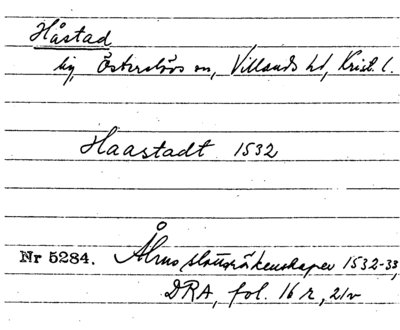 Håstad
by, Österslövs sn, Villands hd, Krist. l.
Haastadt 1532
Nr 5284. Åhus slottsräkenskaper 1532-33,
DRA, fol. 16 r, 21v